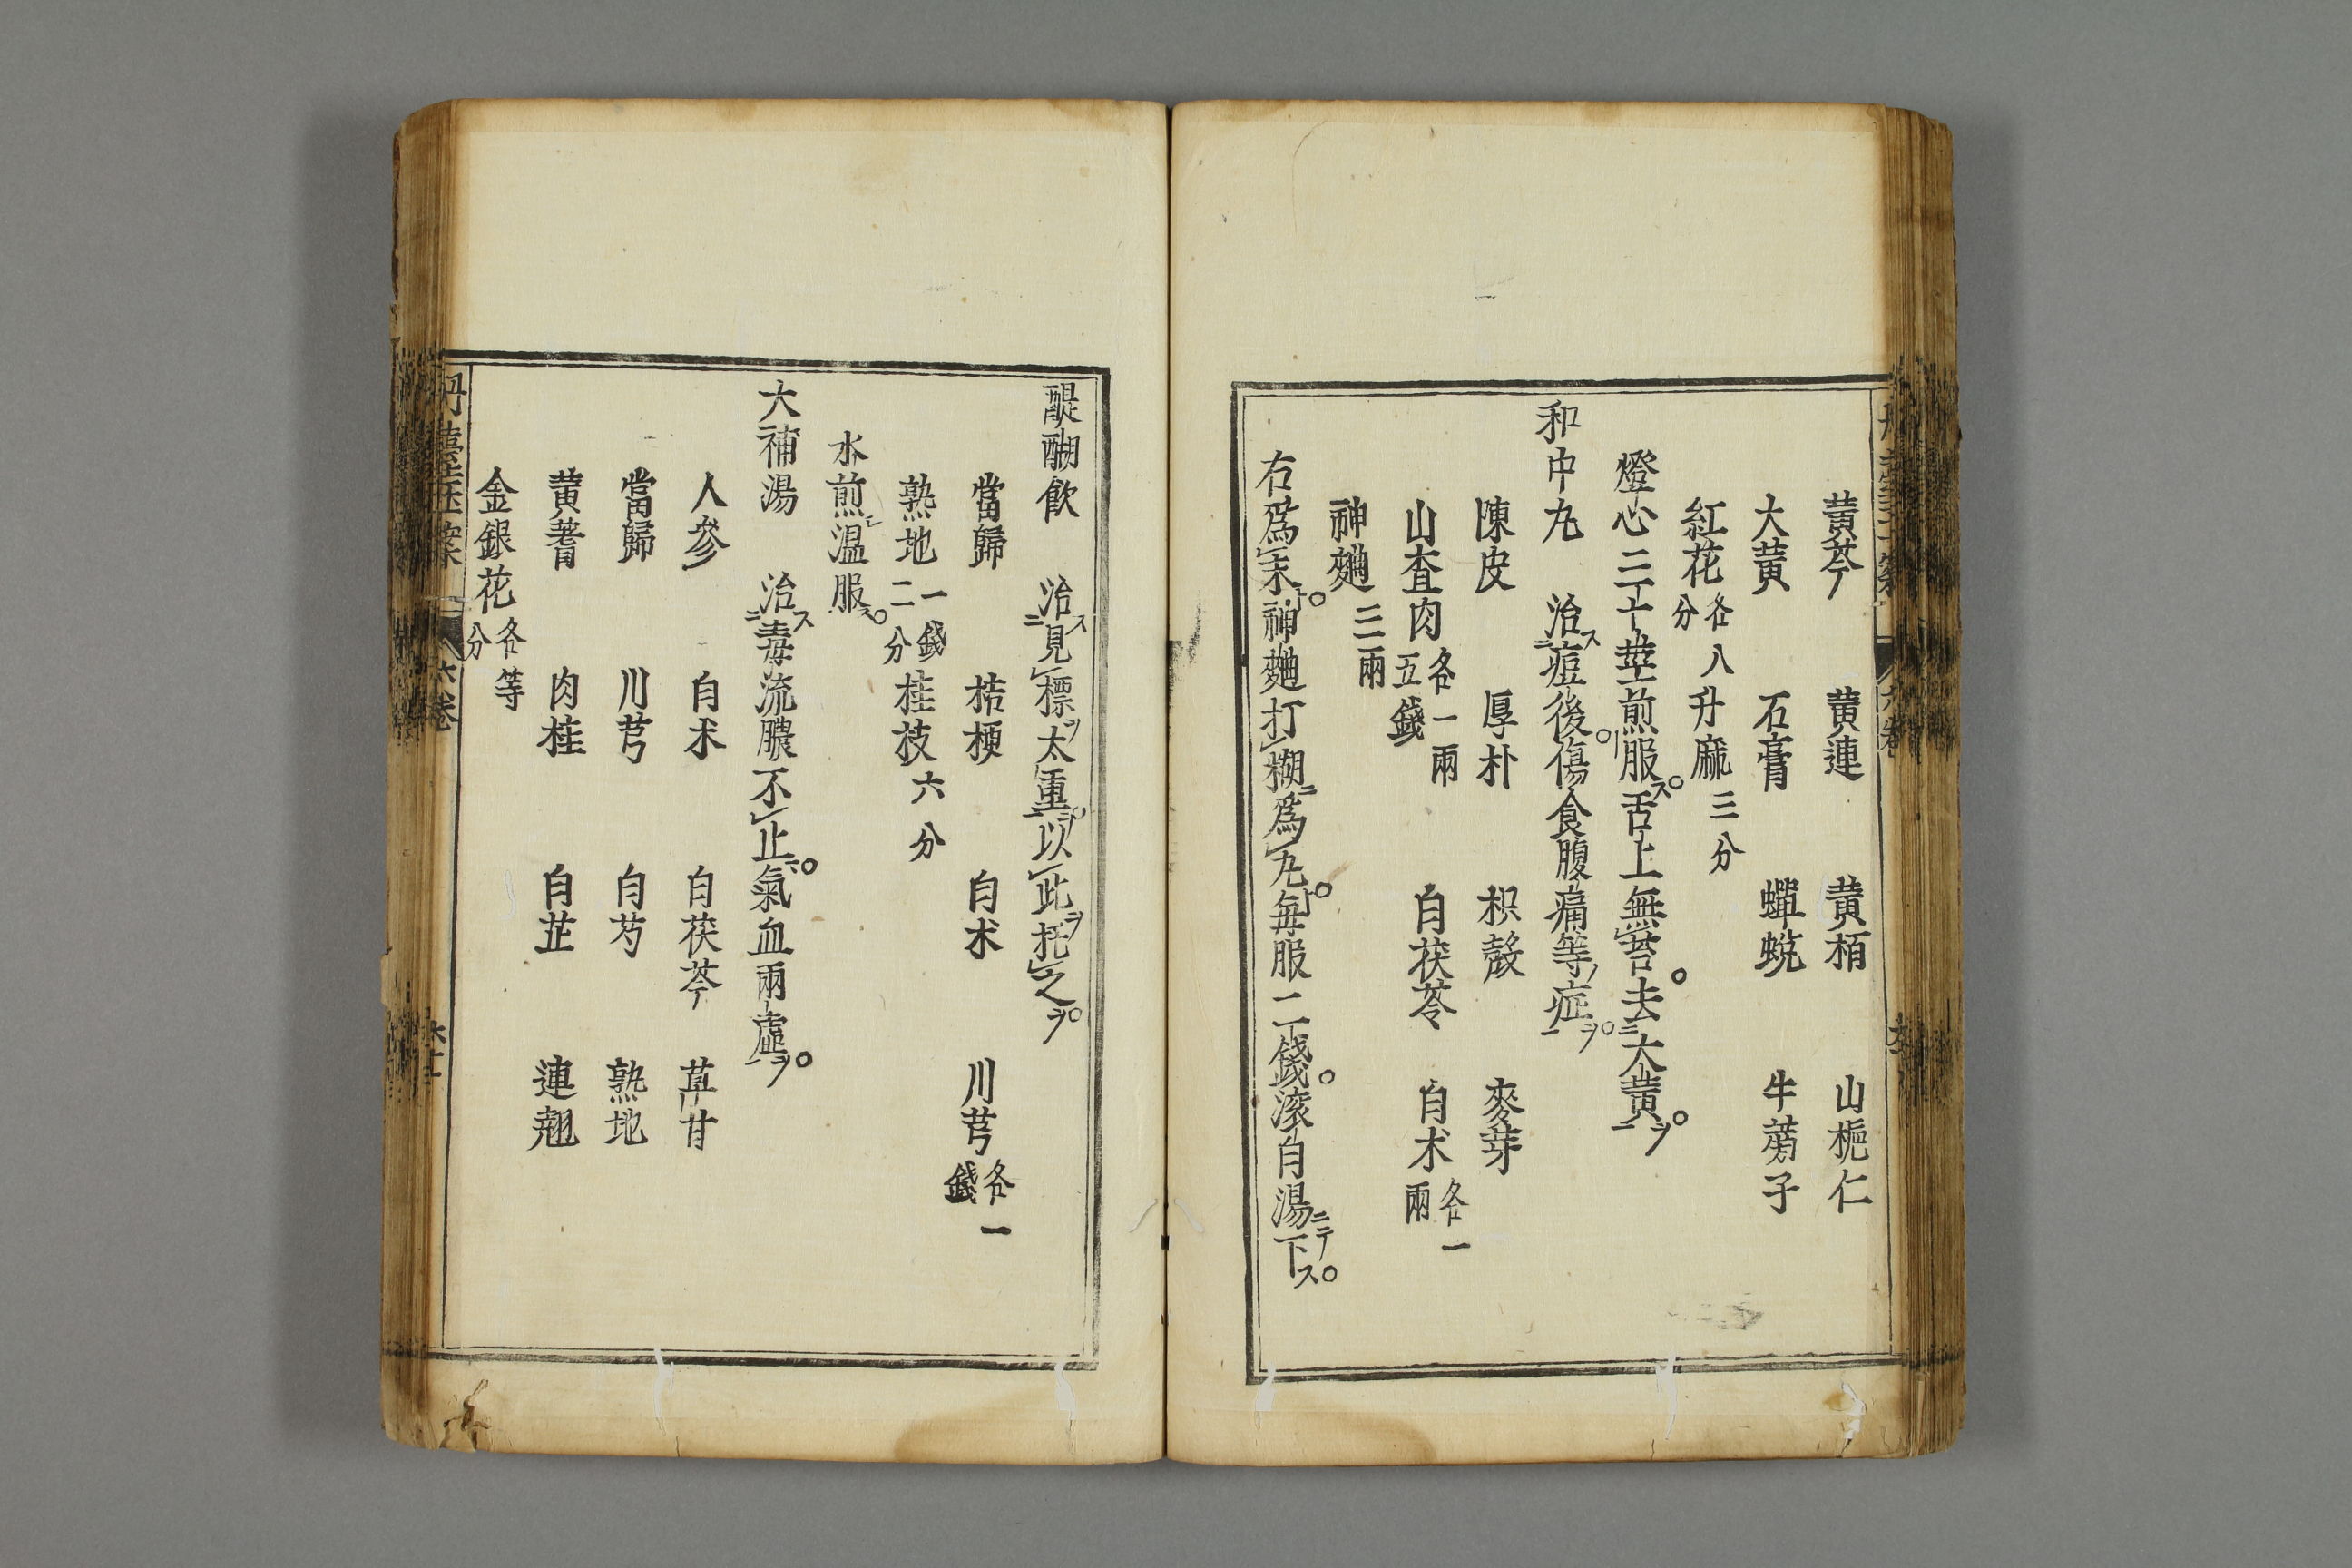 黄芩　黄連　黄栢　山梔仁
大黄　石膏　蟬蛻　牛蒡子
紅花各八分　升麻三分
燈心三十莖煎服ス舌上無苔去ニ大黄ヲ一
和中丸　治ス二痘後傷食腹痛等ノ症ヲ一
陳皮　厚朴　枳殼　麥芽
山査肉各一兩五錢　白茯苓　白朮各一兩
神麯三兩
右爲末神麯打糊ニ爲丸毎服二錢滚白湯ニテ下ス
醍醐飲　治ス二見標ヲ太重ヲ一以此ヲ托之ヲ
當歸　桔梗　白朮　川芎各一錢
熟地一錢二分　桂枝六分
水煎温服ス
大補湯　治ス二毒流膿不止氣血兩虛ヲ一
人參　白朮　白茯苓　草甘
當歸　川芎　白芍　熟地
黄耆　肉桂　白芷　連翹
金銀花各等分
六卷